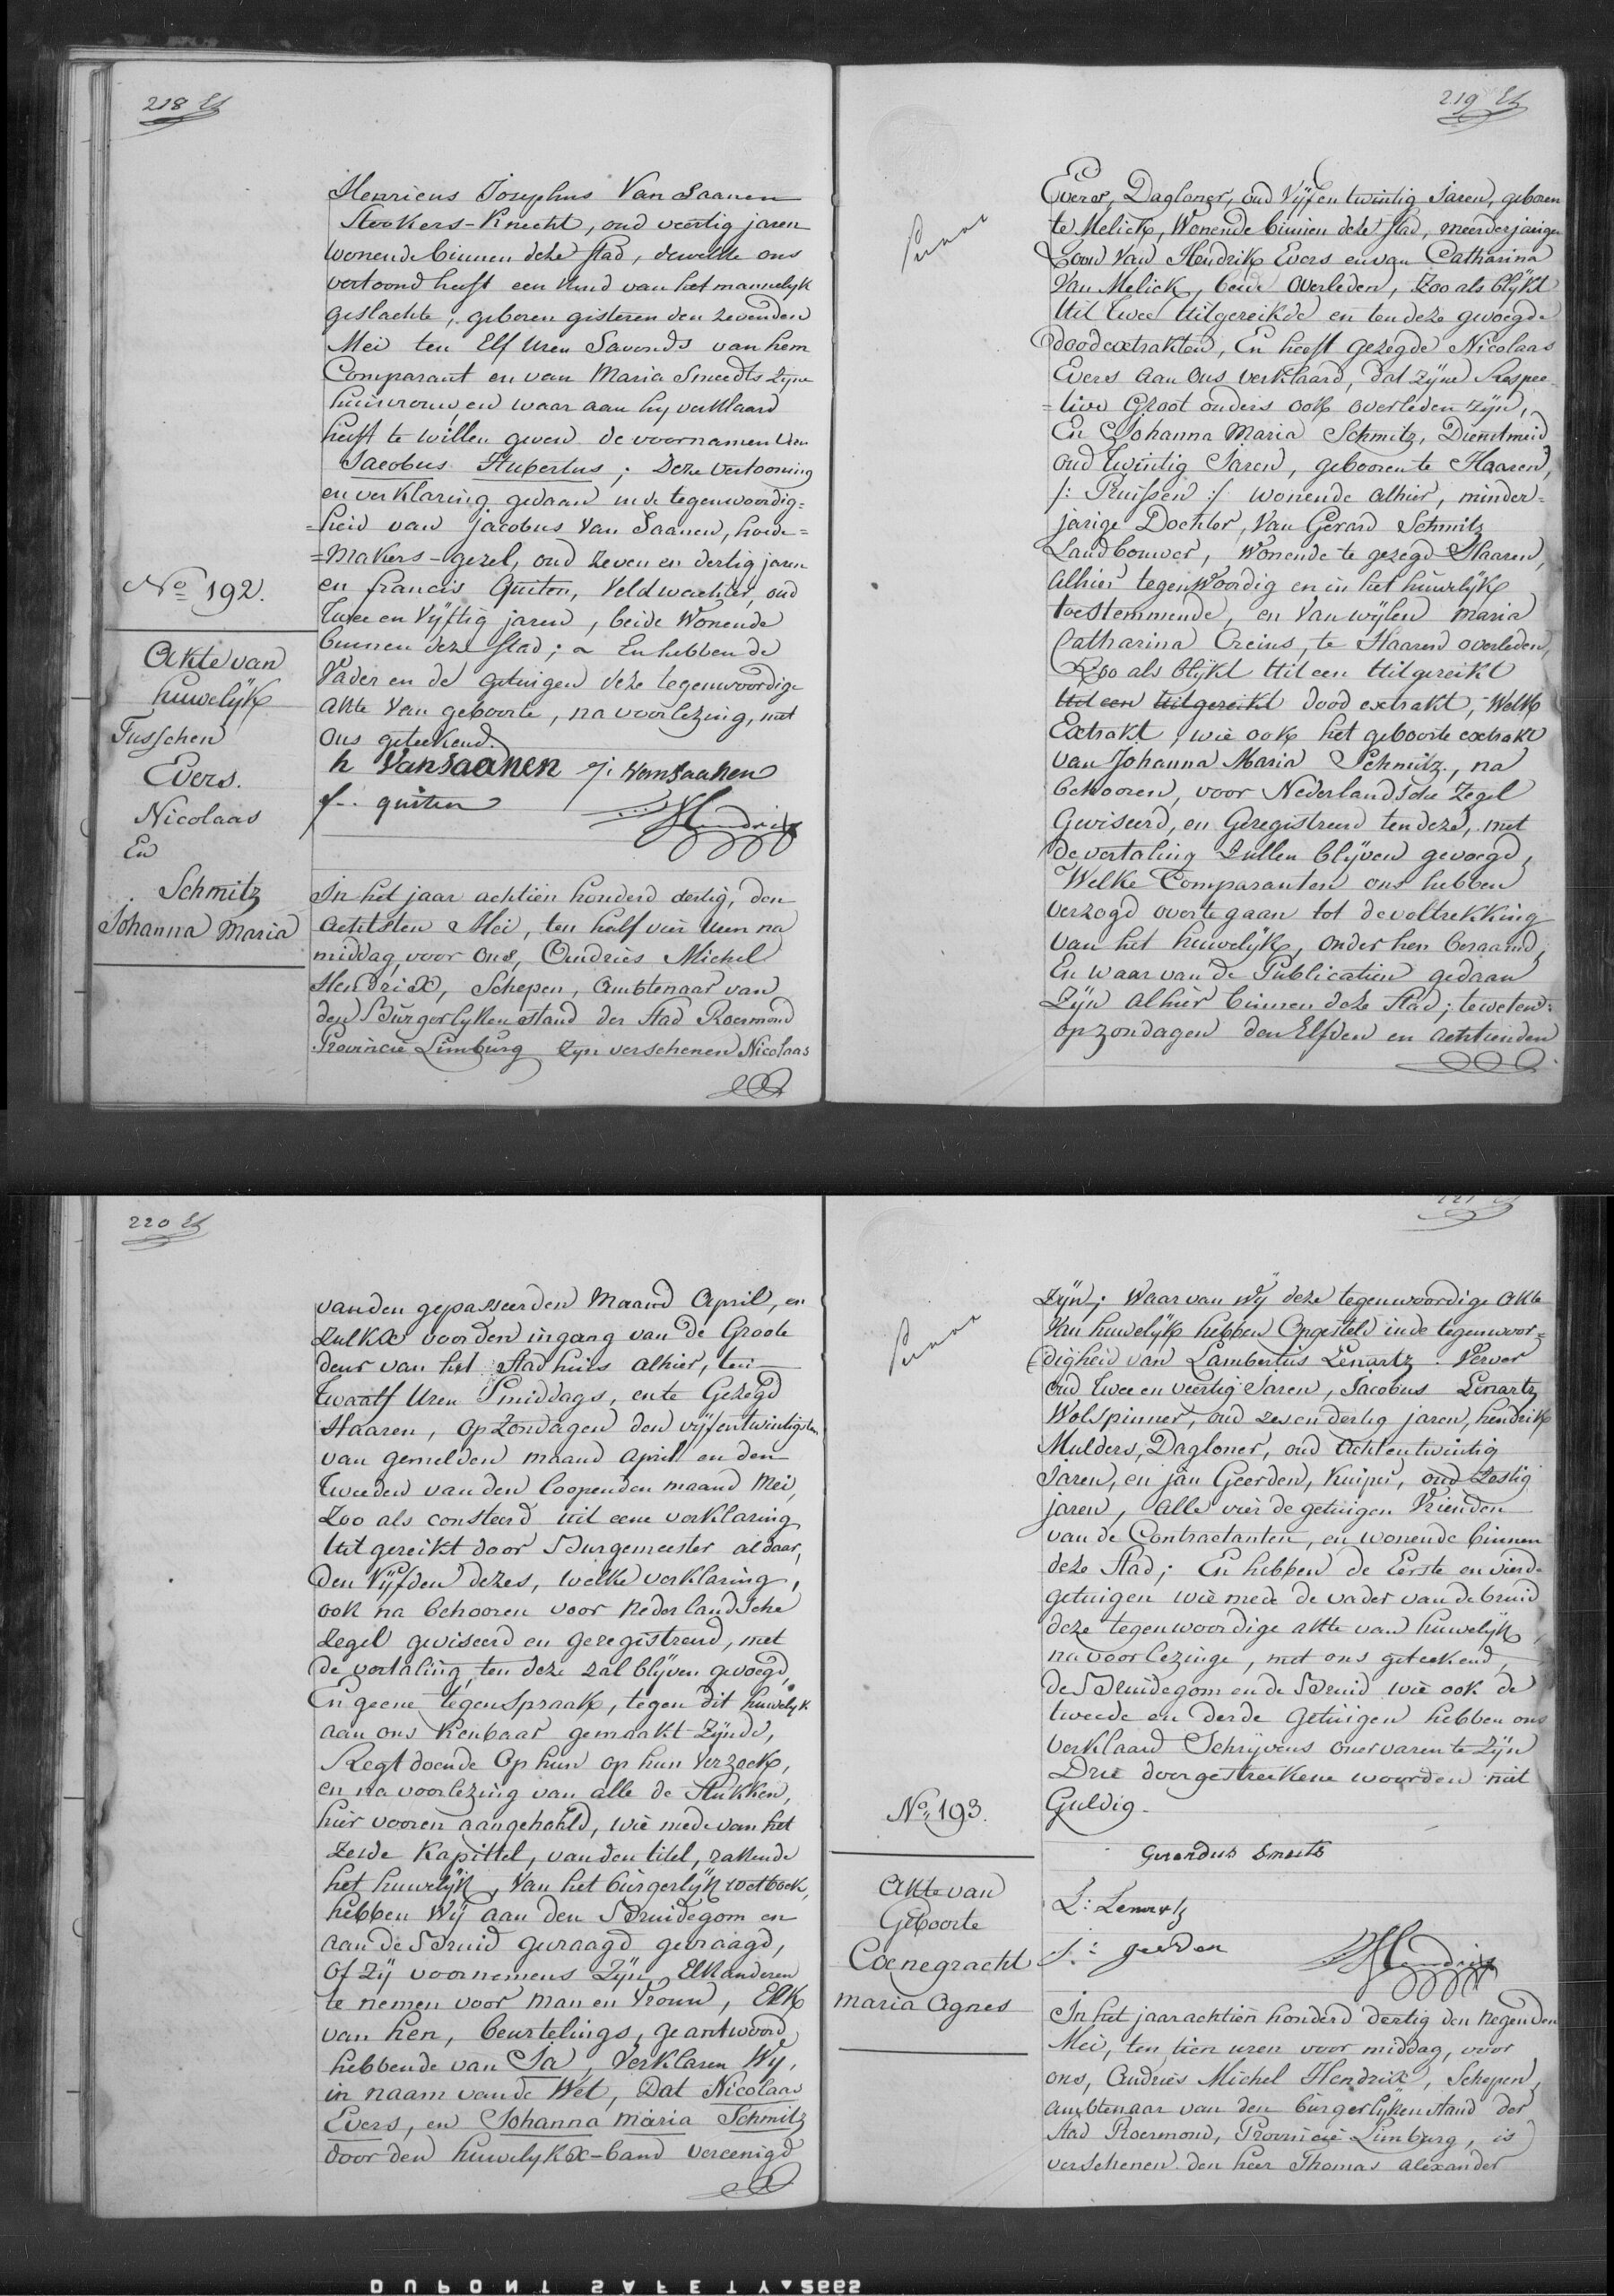 218
Henricus Josephus Van Saanen
Stookers-Knecht, oud veertig jaren
wonende binnen deze stad, dewelke ons
vertoond heeft een kind van het mannelyk
geslachte, geboren gisteren den zevenden
Mei ten Elf Uren Savonds van hem
Comparant en van Maria Smeedts zyne
huisvrouw, en waar aan hy verklaard
heeft te willen geven de voornamen van
Jacobus Hubertus; Deze vertooning
en verklaring gedaan in de tegenwoordig=
=heid van Jacobus Van Saanen, hoede=
=Makers-gezel, oud zeven en dertig jaren
en francis Quiten, Veldwachter, oud
Twee en Vÿftig jaren, beide Wonende
binnen deze Stad; En hebben de
Vader en de getuigen deze tegenwoordige
akte Van geboorte, na voorlezing, met
Ons geteekend.
h VanSaanen j: VanSaanen
f.. quiten Hendrix
No 192.
Akte van
huwelÿk
Tusschen
Evers.
Nicolaas
En
Schmitz
Johanna Maria
In het jaar achtien honderd dertig, den
achtsten Mei, ten half vier Uren na
middag, voor Ons, Andries Michel
Hendrix, Schepen, Ambtenaar van
den Burgerlyken stand der Stad Roermond
Provincie Limburg zyn verschenen Nicolaas
219
Evers, Dagloner, oud Vÿf en twintig Jaren, geboren
te Melick, Wonende binnen deze stad, meerderjarige
Zoon Van Hendrik Evers en van Catharina
Van Melick, beide Overleden, Zoo als blÿkt
Uit Twee Uitgereikde en ten deze gevoegde
doodextrakten, En heeft gezegde Nicolaas
Evers aan Ons verklaard, dat zÿne Respec
=tive Groot ouders ook overleden zÿn,
En Johanna Maria Schmitz, Dienstmeid
oud Twintig Jaren, geboorente Haaren,
/: Pruissen :/ wonende alhier, minder=
jarige Dochter, Van Gerard Schmitz
Landbouwer, Wonende te gezegd Haaren,
alhier tegenwoordig en in het huwelÿk
toestemmende, en Van wÿlen Maria
Catharina Creins, te Haaren overleden,
Zoo als blÿkt Uit een Uitgereikt
Uit een Uitgereikt dood extrakt, Welk
Extrakt, wie ook het geboorte extrakt
van Johanna Maria Schmitz, na
behooren, voor Nederlandsche Zegel
Geviseerd, en Geregistreerd ten deze, met
de vertaling Zullen blÿven gevoegd,
Welke Comparanten ons hebben
verzogd over te gaan tot de voltrekking
van het huwelÿk, onder hen beraamd,
En waar van de Publicatien gedaan
Zÿn alhier binnen deze Stad; te weten:
op zondagen den Elfden en achtienden
220
van den gepasseerden Maand April, en
zulkx voor den ingang van de Groote
deur van het Stadhuis alhier, ten
Twaalf Uren Smiddags, en te Gezegd
Haaren, op Zondagen den vÿfentwintigsten
van gemelden maand April en den
Tweeden van den loopenden maand Mei,
Zoo als consteerd uit eene verklaring
Uitgereikt door Burgemeester aldaar,
den Vÿfden dezes, welke verklaring,
ook na behooren voor Nederlandsche
Zegel geviseerd en geregistreerd, met
de vertaling, ten deze zal blÿven gevoegd,
En geene tegenspraak, tegen dit huwelyk
aan ons Kenbaar gemaakt Zÿnde,
Regt doende Op hun op hun verzoek,
en na voorlezing van alle de Stukken,
hier vooren aangehaald, wie mede van het
zesde Kapittel, van den titel, rakende
het huwelÿk, Van het burgerlÿk wetboek,
hebben Wÿ aan den Bruidegom en
aan de Bruid gevraagd gevraagd,
Of Zÿ voornemens Zÿn, Elkanderen
te nemen voor Man en Vrouw, Elk
van hen, beurtelings, geantwoord
hebbende van Ja, Verklaren Wy,
in naam van de Wet, Dat Nicolaas
Evers, en Johanna Maria Schmitz
door den huwelykx-band vereenigd
Zÿn; Waar van wÿ deze tegenwoordige akte
Van huwelÿk hebben Opgesteld in de tegenwoor=
digheid van Lambertus Lenartz Verver
oud Twee en veertig Jaren, Jacobus Lenartz
Wolspinner, oud zesendertig jaren, hendrik
Mulders, Dagloner, oud Achtentwintig
Jaren, en jan Geerden, Kuiper, oud Zestig
jaren, Alle vier de getuigen Vrienden
van de Contractanten, en wonende binnen
deze Stad; En hebben de Eerste en vierde
getuigen wie mede de vader van de bruid
deze tegenwoordige akte van huwelÿk,
na voorlezinge, met ons geteekend,
de Bruidegom en de Bruid wie ook de
tweede en derde Getuigen hebben ons
verklaard Schryvens onervaren te Zÿn
Drie doorgestreekene woorden niet
Guldig.
L: Lenartz
J: geerden Hendrix
No 193.
Akte van
Geboorte
Coenegracht
Maria Agnes
In het jaar achtien honderd dertig den Negenden
Mei, ten tien uren voor middag, voor
ons, Andries Michel Hendrix, Schepen,
ambtenaar van den burgerlÿken stand der
Stad Roermond, Provincie Limburg, is
verschenen den heer Thomas Alexander
DUPONT SAFETY